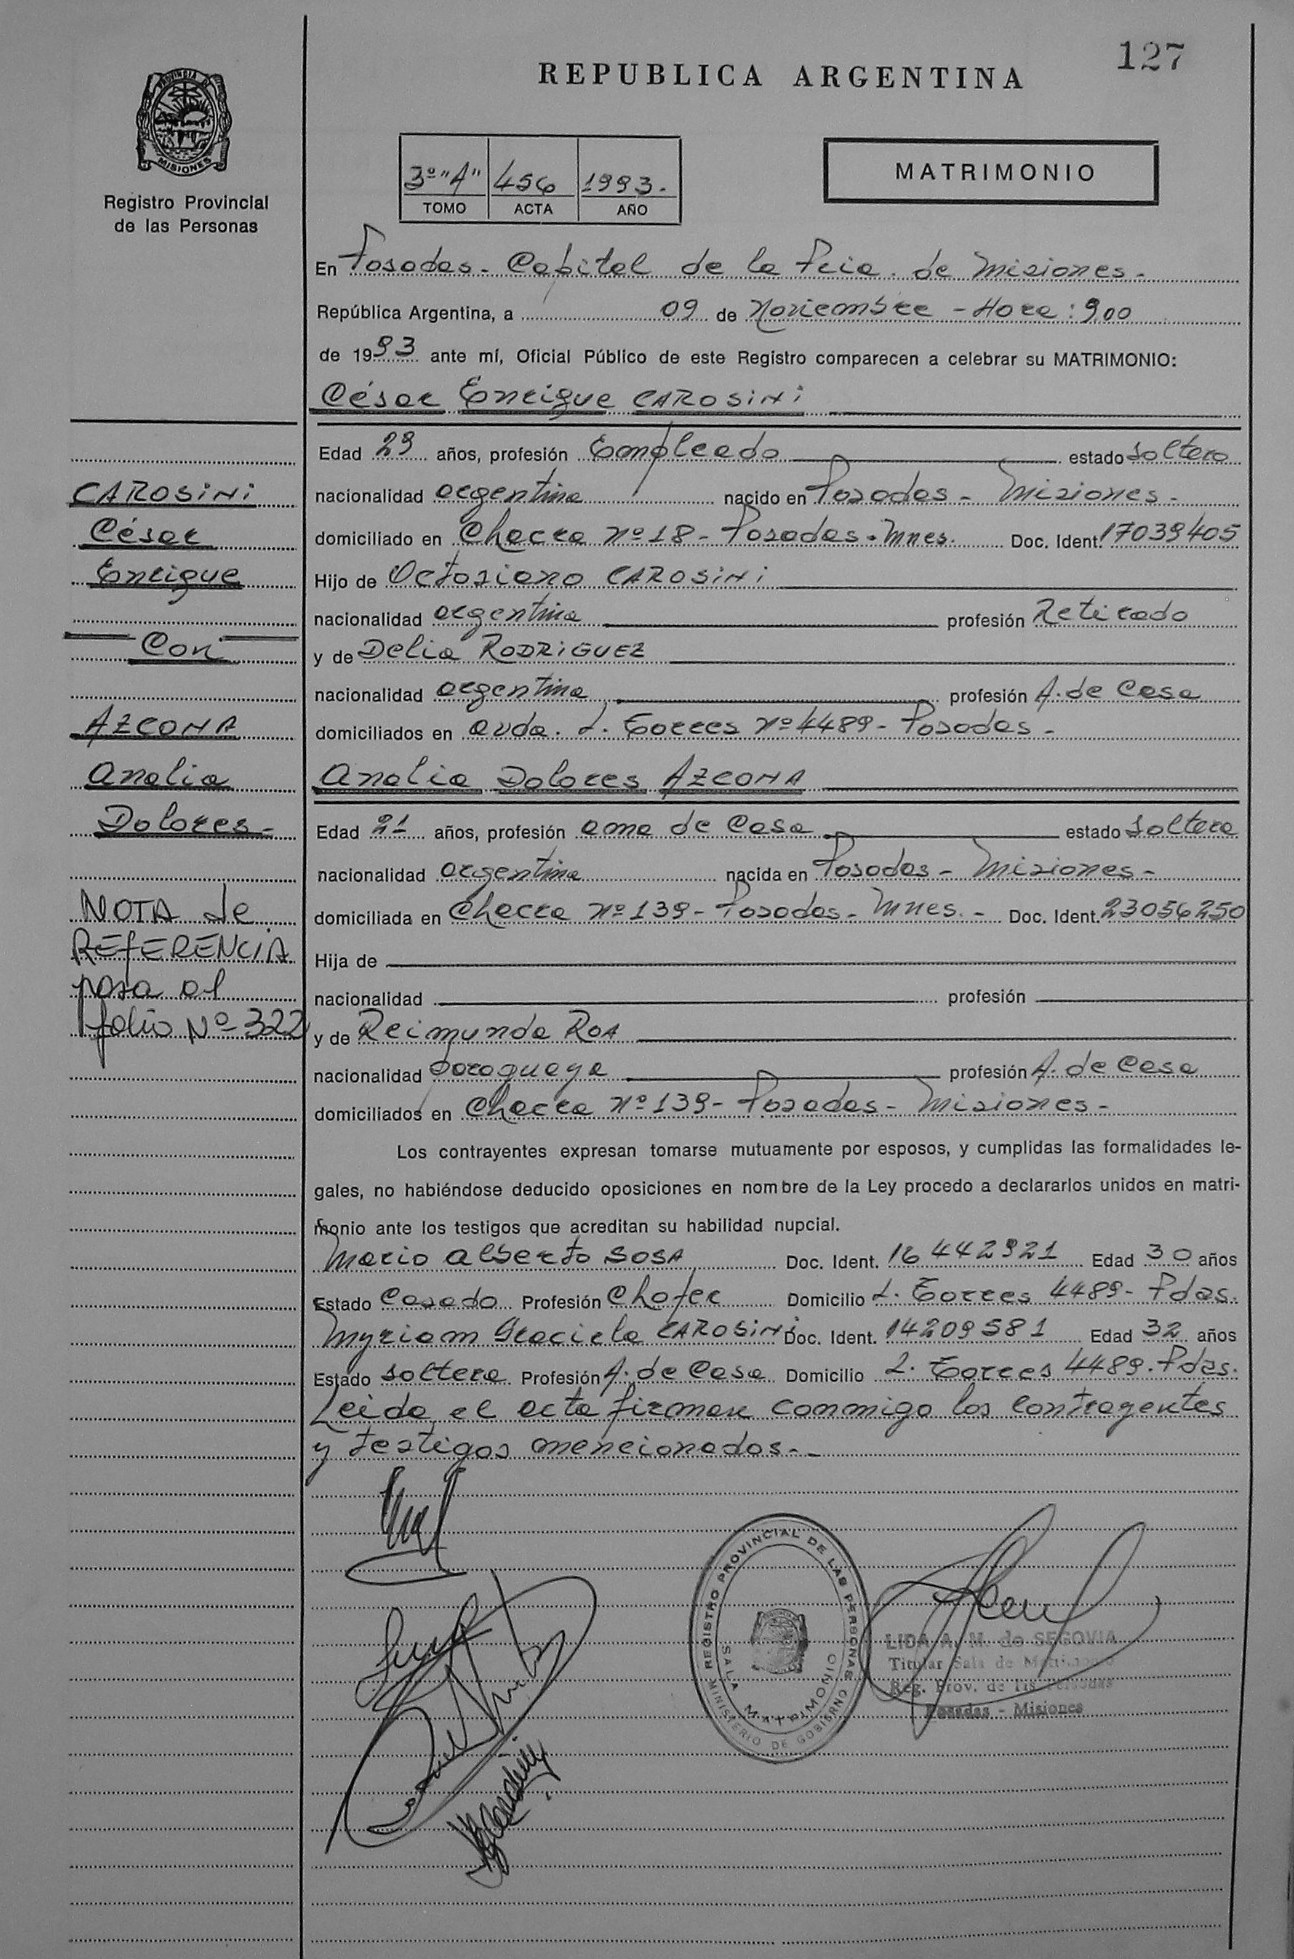 127
REPUBLICA ARGENTINA
PROVINCIA DE
MISIONES
Registro Provincial
de las Personas
3º "A" 456 1993.
TOMO ACTA AÑO
MATRIMONIO
En Posadas - Capital de la Pcia. de Misiones -
República Argentina, a 09 de Noviembre - Hora: 9,00
de 1993 ante mí, Oficial Público de este Registro comparecen a celebrar su MATRIMONIO:
César Enrique CAROSINI
Edad 29 años, profesión Empleado estado soltero
nacionalidad argentina nacido en Posadas - Misiones -
domiciliado en Chacra Nº 18 - Posadas - Mnes. Doc. Ident. 17039405
Hijo de Octaviano CAROSINI
nacionalidad argentina profesión Retirado
y de Delia RODRIGUEZ
nacionalidad argentina profesión A. de Casa
domiciliados en avda. L. Torres Nº 4489 - Posadas -
Analia Dolores AZCONA
Edad 21 años, profesión ama de Casa estado soltera
nacionalidad argentina nacida en Posadas - Misiones -
domiciliada en Chacra Nº 139 - Posadas - Mnes. - Doc. Ident. 23056250
Hija de
nacionalidad profesión
y de Reimunda ROA
nacionalidad paraguaya profesión A. de Casa
domiciliados en Chacra Nº 139 - Posadas - Misiones -
Los contrayentes expresan tomarse mutuamente por esposos, y cumplidas las formalidades le-
gales, no habiéndose deducido oposiciones en nombre de la Ley procedo a declararlos unidos en matri-
monio ante los testigos que acreditan su habilidad nupcial.
Mario Alberto SOSA Doc. Ident. 16442921 Edad 30 años
Estado Casado Profesión Chofer Domicilio L. Torres 4489 - Pdas.
Myriam Graciela CAROSINI Doc. Ident. 14209581 Edad 32 años
Estado soltera Profesión A. de Casa Domicilio L. Torres 4489 - Pdas.
Leida el acta firman conmigo los contrayentes
y testigos mencionados. -
CAROSINI
César
Enrique
Con
AZCONA
Analia
Dolores -
NOTA de
REFERENCIA
pasa al
folio Nº 322
REGISTRO PROVINCIAL DE LAS PERSONAS
SALA MATRIMONIO
MINISTERIO DE GOBIERNO
LIDA A. M. de SEGOVIA
Titular Sala de Matrimonio
Reg. Prov. de las Personas
Posadas - Misiones